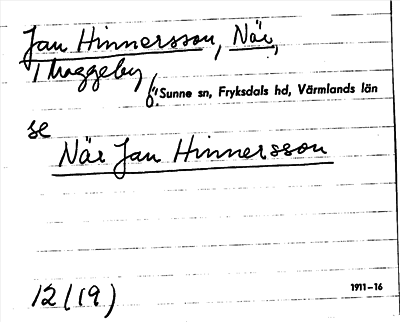 Jan Hinnersson, När,
i Maggeby,
Sunne sn, Fryksdals hd, Värmlands län
se
När Jan Hinnersson
12(19)
1911-16